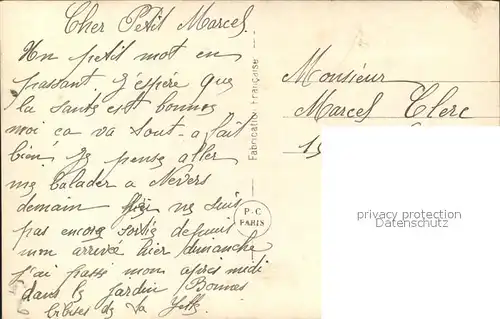 Cher Petit Marcel.
Un petit mot en
passant. J'espère que
la santé est bonnes
moi ca va tout-a fait
bien. Je pense aller
me balader a Nevers
demain je ne suis
pas encore sortie depuis
mon arrivé hier dimanche
j'ai passé mon après midi
dans le jardin Bonnes
bibises de ta
Fabrication Française
P-C
PARIS
Monsieur
Marcel Clerc
15
privacy protection
www.ansichtskarten-center.de